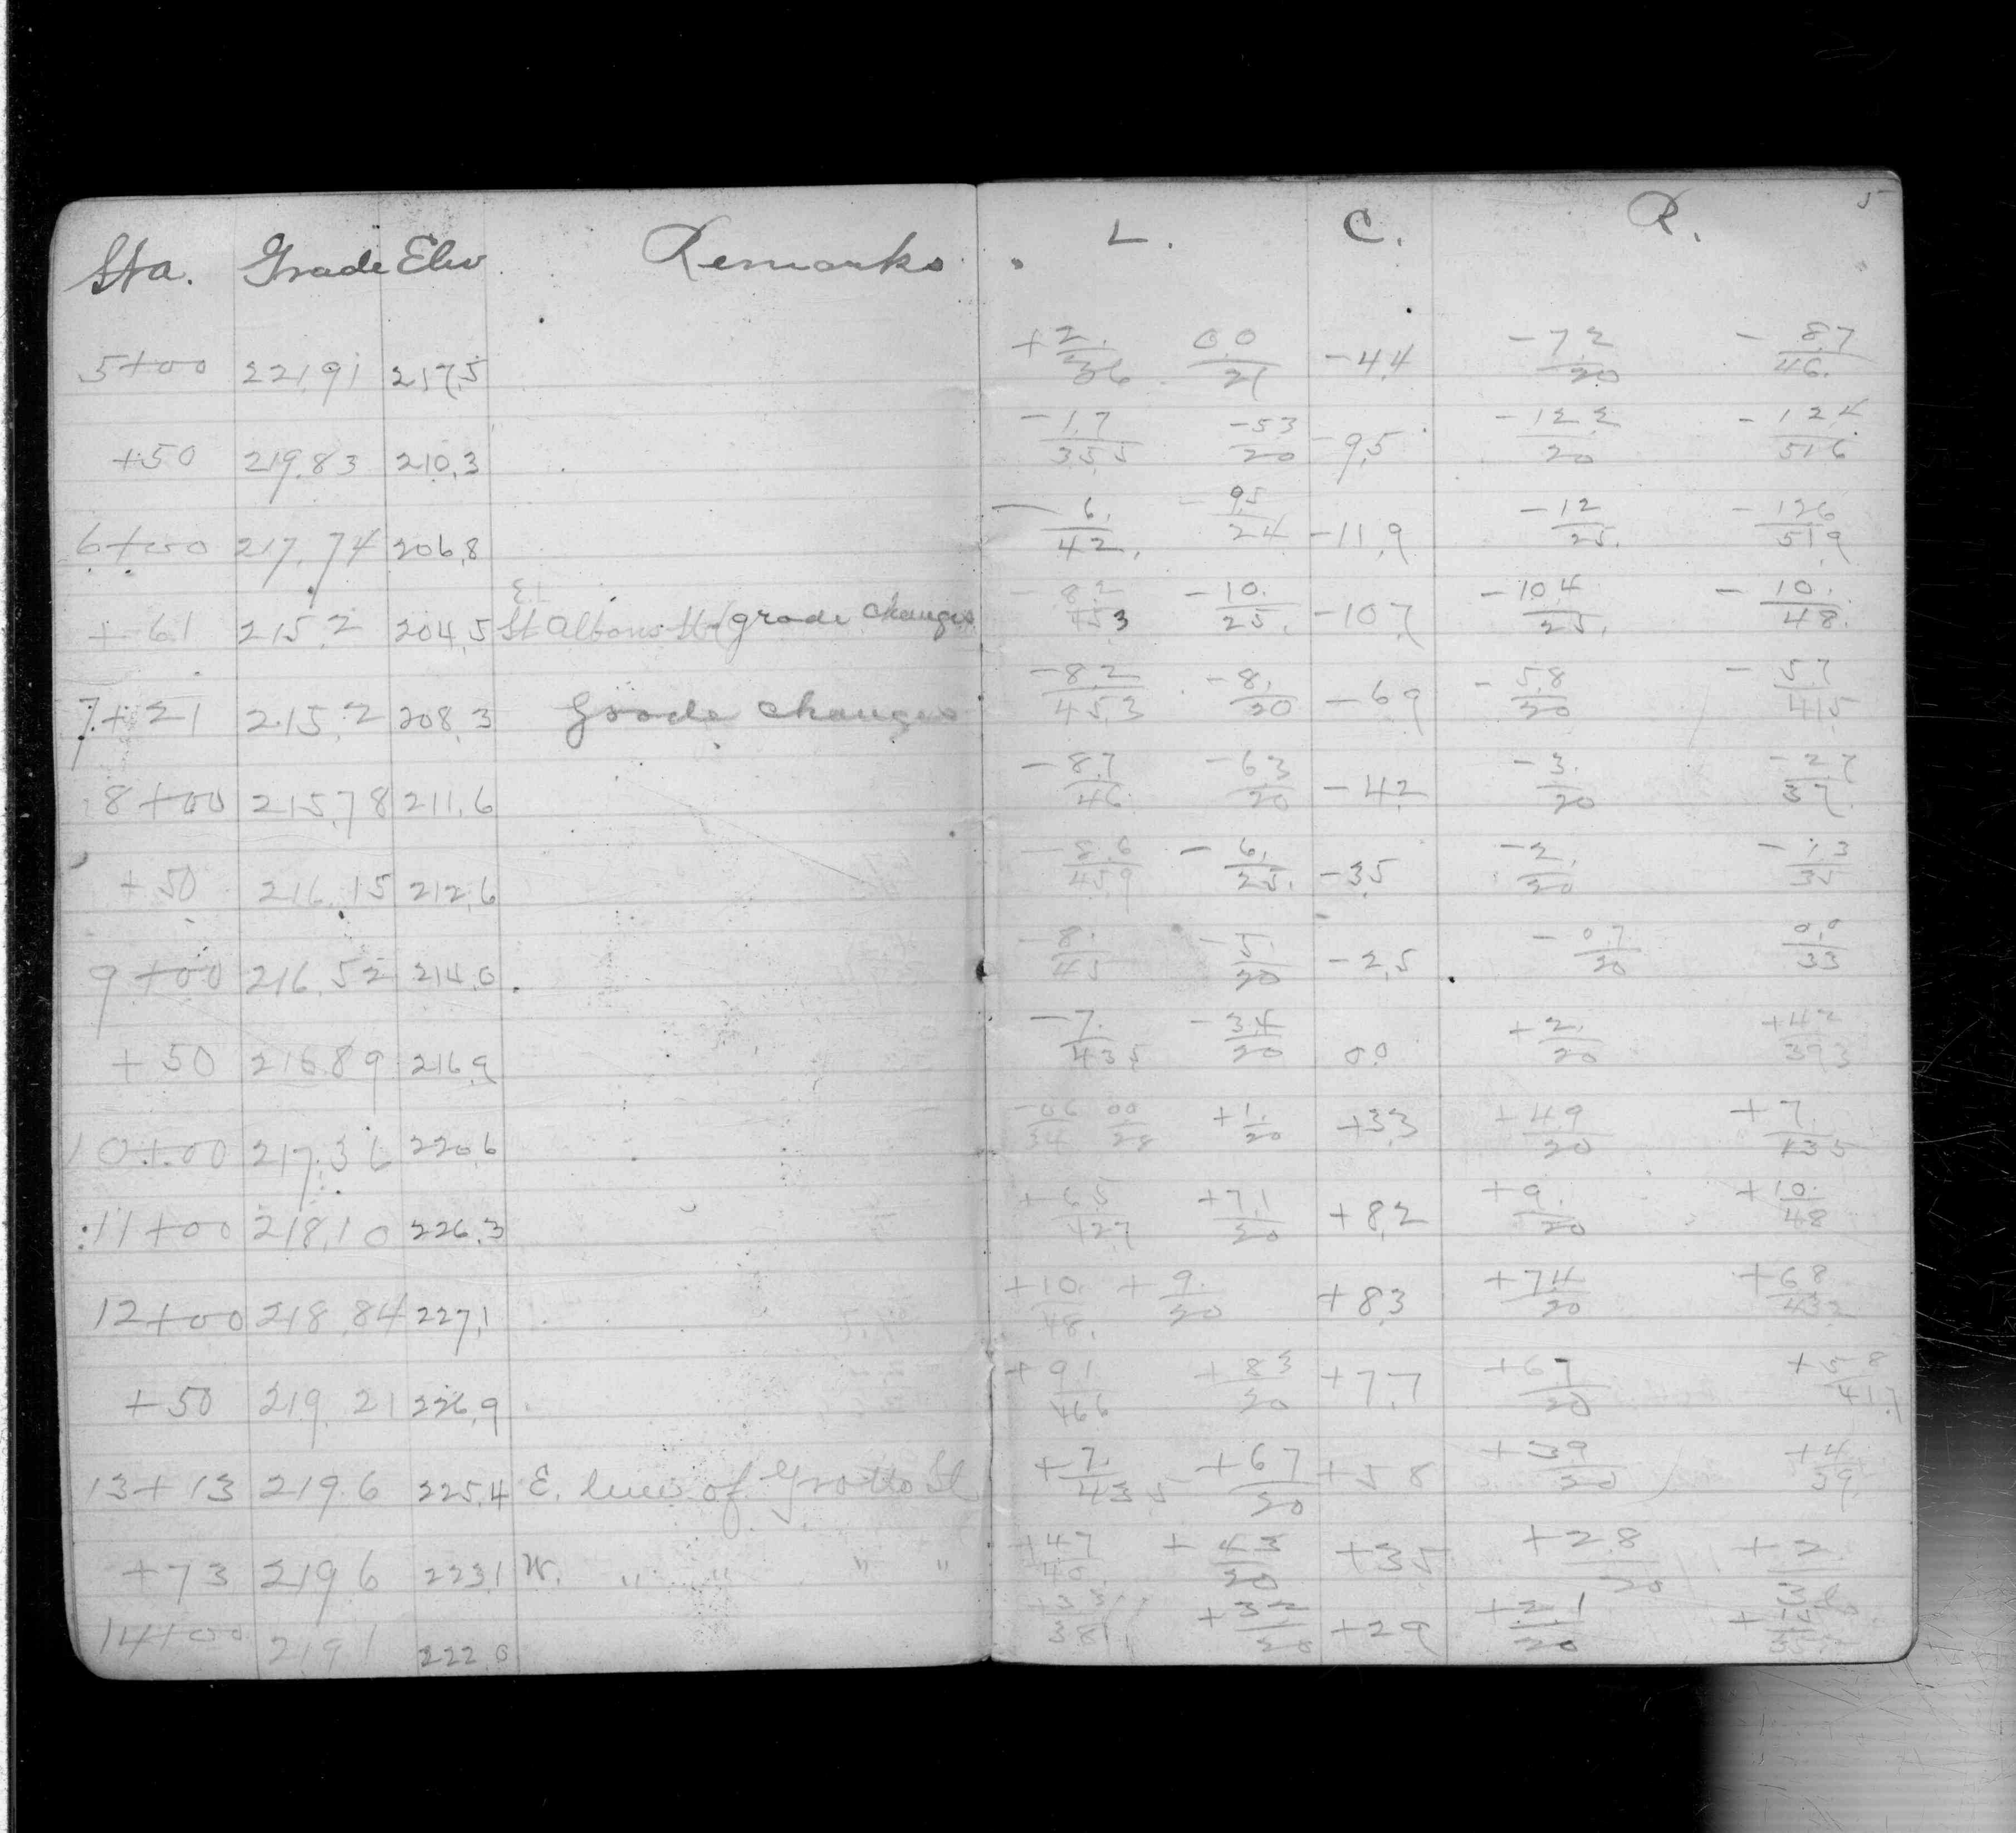 5
Sta. Grade Elev Remarks L. C. R.
5+00 221.91 217.5 +2./36 0.0/21 -4.4 -7.2/20 -8.7/46.
+50 219.83 210.3 -1.7/35.5 -5.3/20 -9.5 -12.2/20 -12.4/51.6
6+00 217.74 206.8 -6./42. -9.5/24 -11.9 -12/25. -12.6/51.9
E.L.
+61 215.2 204.5 St Albans St (grade changes -8.2/45.3 -10./25. -10.7 -10.4/25. -10./48.
7+21 215.2 208.3 Grade changes -8.2/45.3 -8./20 -6.9 -5.8/20 -5.7/41.5
8+00 215.78 211.6 -8.7/46 -6.3/20 -4.2 -3./20 -2.7/37.
+50 216.15 212.6 -8.6/45.9 -6./25. -3.5 -2./20 -1.3/35
9+00 216.52 214.0 -8./45 -5./20 -2.5 -0.7/20 0.0/33
+50 216.89 216.9 -7./43.5 -3.4/20 0.0 +2./20 +4.2/39.3
10+00 217.36 220.6 -0.6/34 0.0/28 +1./20 +3.3 +4.9/20 +7./43.5
11+00 218.10 226.3 +6.5/42.7 +7.1/20 +8.2 +9./20 +10./48
12+00 218.84 227.1 +10./48. +9./20 +8.3 +7.4/20 +6.8/43.2
+50 219.21 226.9 +9.1/46.6 +8.3/20 +7.7 +6.7/20 +5.8/41.7
13+13 219.6 225.4 E. line of Grotto St +7./43.5 +6.7/20 +5.8 +3.9/20 +4/39.
+73 219.6 223.1 W. " " " " +4.7/40. +4.3/20 +3.5 +2.8/20 +2
14+00 219.1 222.0 38.1 +3.2/20 +2.9 +2.1/20